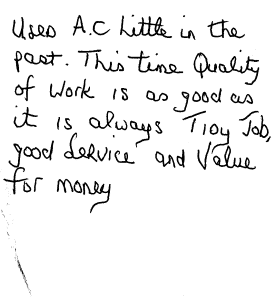 Used A.C Little in the
past. This time Quality
of Work is as good as
it is always Tidy Job,
good Service and Value
for money